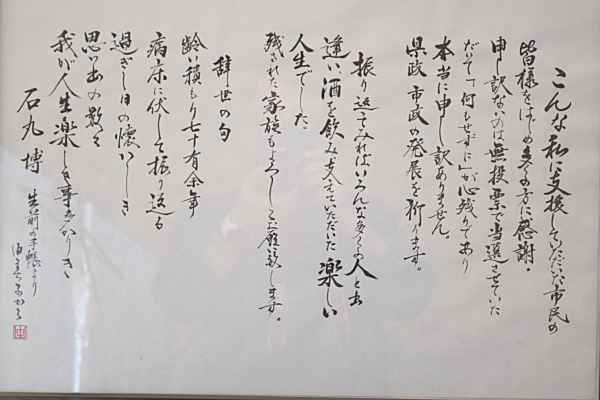 こんな私に支援していただいた市民の
皆様をはじめ多くの方に感謝。
申し訳ないのは無投票で当選させていた
だいて「何もせずに」が心残りであり
本当に申し訳ありません。
県政市政の発展を祈ります。
振り返ってみればいろんな多くの人と出
逢い酒を飲み支えていただいた楽しい
人生でした。
残された家族もよろしくお願い致します。
辞世の句
齢い積もり七十有余年
病床に伏して振り返る
過ぎし日の懐かしき
思い出の数々
我が人生楽しき事多かりき
石丸博
生前の手帳より